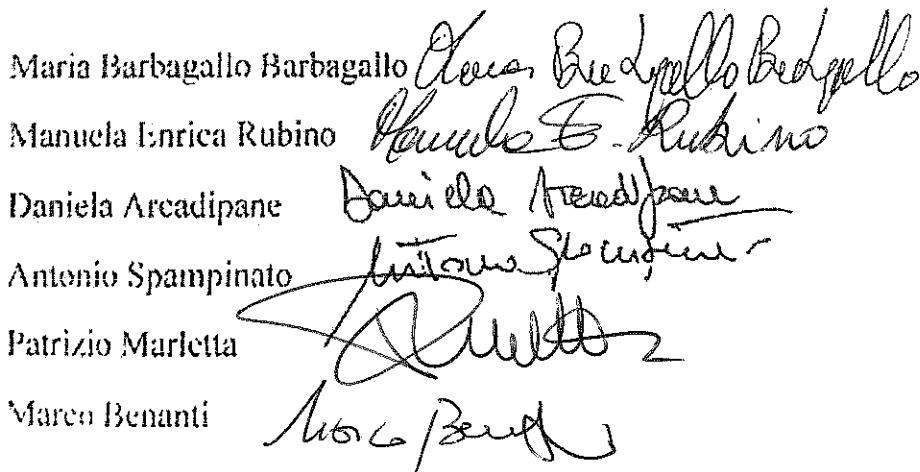 Maria Barbagallo Barbagallo Maria Barbagallo Barbagallo
Manuela Enrica Rubino Manuela E. Rubino
Daniela Arcadipane Daniela Arcadipane
Antonio Spampinato Antonio Spampinato
Patrizio Marletta
Marco Benanti Marco